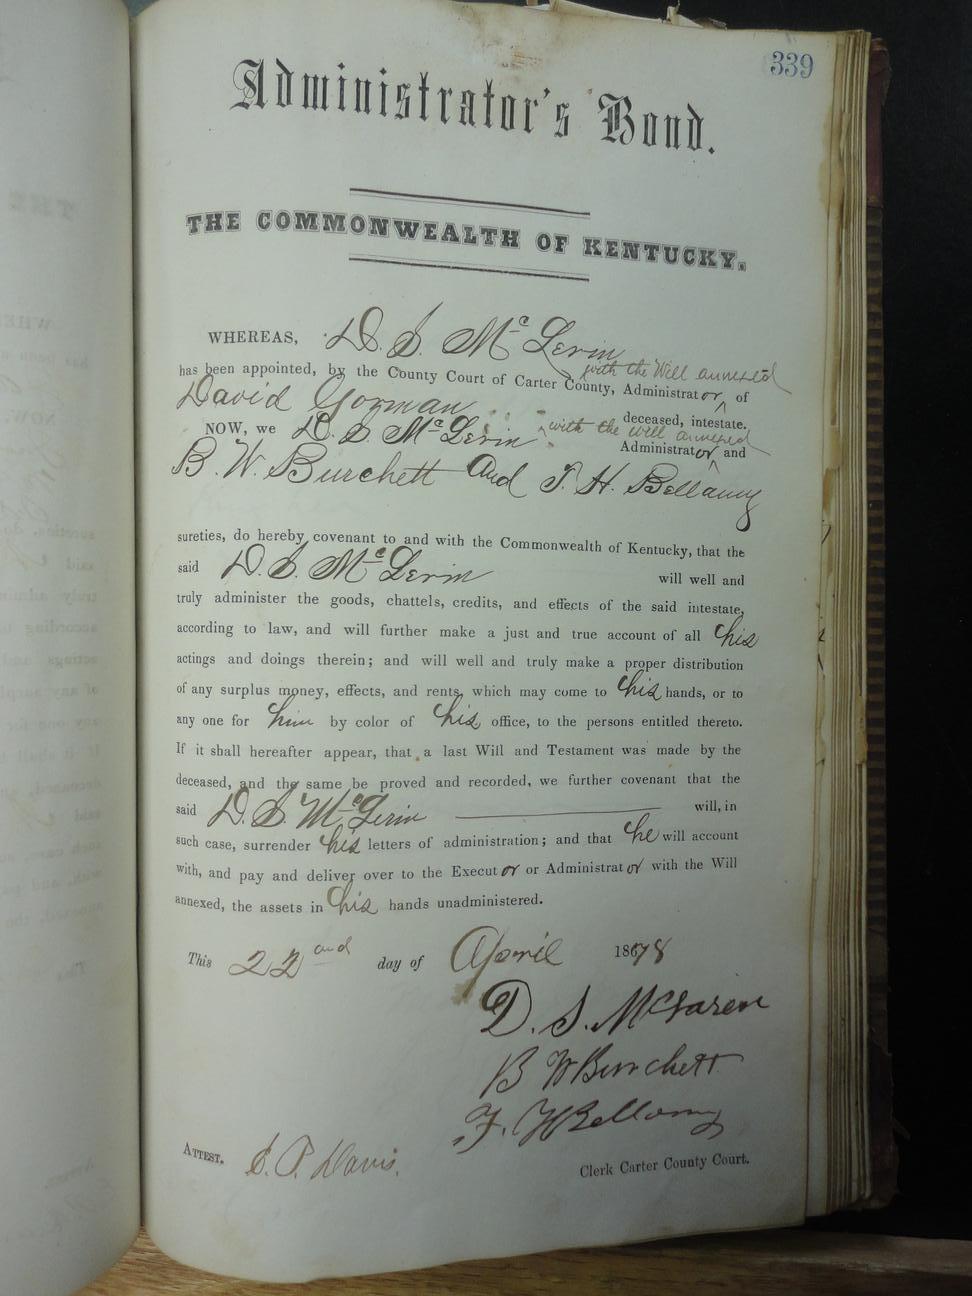 339
Administrator's Bond.
THE COMMONWEALTH OF KENTUCKY.
WHEREAS, D. S. McLerin
with the Will annexed
has been appointed, by the County Court of Carter County, Administrator of
David Gorman deceased, intestate.
with the will annexed
NOW, we D. S. McLerin Administrator and
B. W. Burchett and T. H. Bellamy
sureties, do hereby covenant to and with the Commonwealth of Kentucky, that the
said D. S. McLerin will well and
truly administer the goods, chattels, credits, and effects of the said intestate,
according to law, and will further make a just and true account of all his
actings and doings therein; and will well and truly make a proper distribution
of any surplus money, effects, and rents, which may come to his hands, or to
any one for him by color of his office, to the persons entitled thereto.
If it shall hereafter appear, that a last Will and Testament was made by the
deceased, and the same be proved and recorded, we further covenant that the
said D. S. McLerin will, in
such case, surrender his letters of administration; and that he will account
with, and pay and deliver over to the Executor or Administrator with the Will
annexed, the assets in his hands unadministered.
This 22nd day of April 1878
D. S. McGlaren
B W Burchett
F. H Bellamy
ATTEST. S. P. Davis.
Clerk Carter County Court.